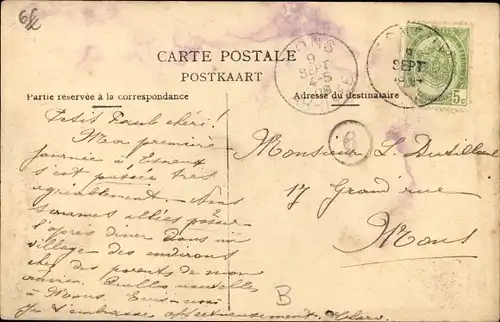 CARTE POSTALE
POSTKAART
Partie réservée à la correspondance
Adresse du destinataire
MONS
9
SEPT
9
SEPT
5c
6
Petit Paul chéri!
Mon première
journée à Esneux
s'est passée très
agréablement. Nous
sommes allées passer
l'après diner dans un
village des environs
chez des parents de mon
Quelles nouvelles
à Mons.
Je t'embrasse affectueusement.
Monsieur L
17 Grand'rue
Mons
B